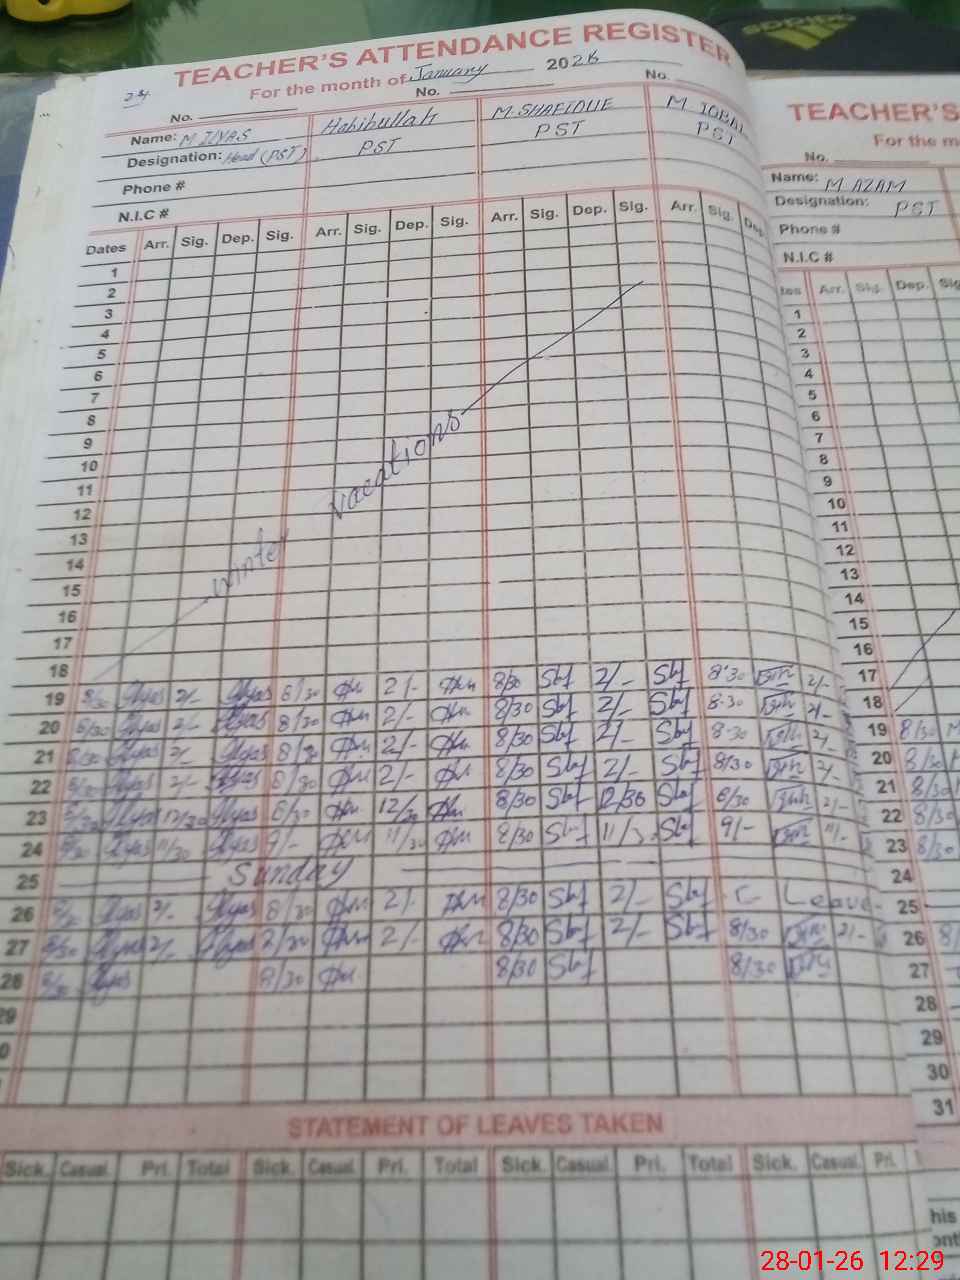 adidas
TEACHER'S ATTENDANCE REGISTER
For the month of January 2026
24
No. No. No.
Name: M ILYAS Habibullah M. SHAFIQUE M. IQBAL
Designation: Head (PST) PST PST PST
Phone #
N.I.C #
Dates Arr. Sig. Dep. Sig. Arr. Sig. Dep. Sig. Arr. Sig. Dep. Sig. Arr. Sig. Dep.
1
2
3
4
5
6
7
8
9
10
11
12
13
14
15
16
17
18
winter vacations
19 8/30 Ilyas 2/- Ilyas 8/30 2/- 8/30 Sbf 2/- Sbf 8:30 2/-
20 8/30 Ilyas 2/- Ilyas 8/30 2/- 8/30 Sbf 2/- Sbf 8:30 2/-
21 8/30 Ilyas 2/- Ilyas 8/30 2/- 8/30 Sbf 2/- Sbf 8:30 2/-
22 8/30 Ilyas 2/- Ilyas 8/30 2/- 8/30 Sbf 2/- Sbf 8/30 2/-
23 8/30 Ilyas 12/30 Ilyas 8/30 12/30 8/30 Sbf 12/30 Sbf 8/30 2/-
24 8/30 Ilyas 11/30 Ilyas 9/- 11/30 8/30 Sbf 11/30 Sbf 9/- 11/-
25 Sunday
26 8/30 Ilyas 2/- Ilyas 8/30 2/- 8/30 Sbf 2/- Sbf C- Leave
27 8/30 Ilyas 2/- Ilyas 2/- 8/30 Sbf 2/- Sbf 8/30 2/-
28 8/30 Ilyas 8/30 8/30 Sbf 8/30
29
0
STATEMENT OF LEAVES TAKEN
Sick. Casual. Pri. Total Sick. Casual. Pri. Total Sick. Casual. Pri. Total Sick. Casual. Pri.
TEACHER'S
For the m
No.
Name: M. AZAM
Designation: PST
Phone #
N.I.C #
tes Arr. Sig. Dep. Sig
1
2
3
4
5
6
7
8
9
10
11
12
13
14
15
16
17
18
19 8/30
20 8/30
21 8/30
22 8/30
23 8/30
24
25
26 8/
27
28
29
30
31
his
ont
28-01-26 12:29